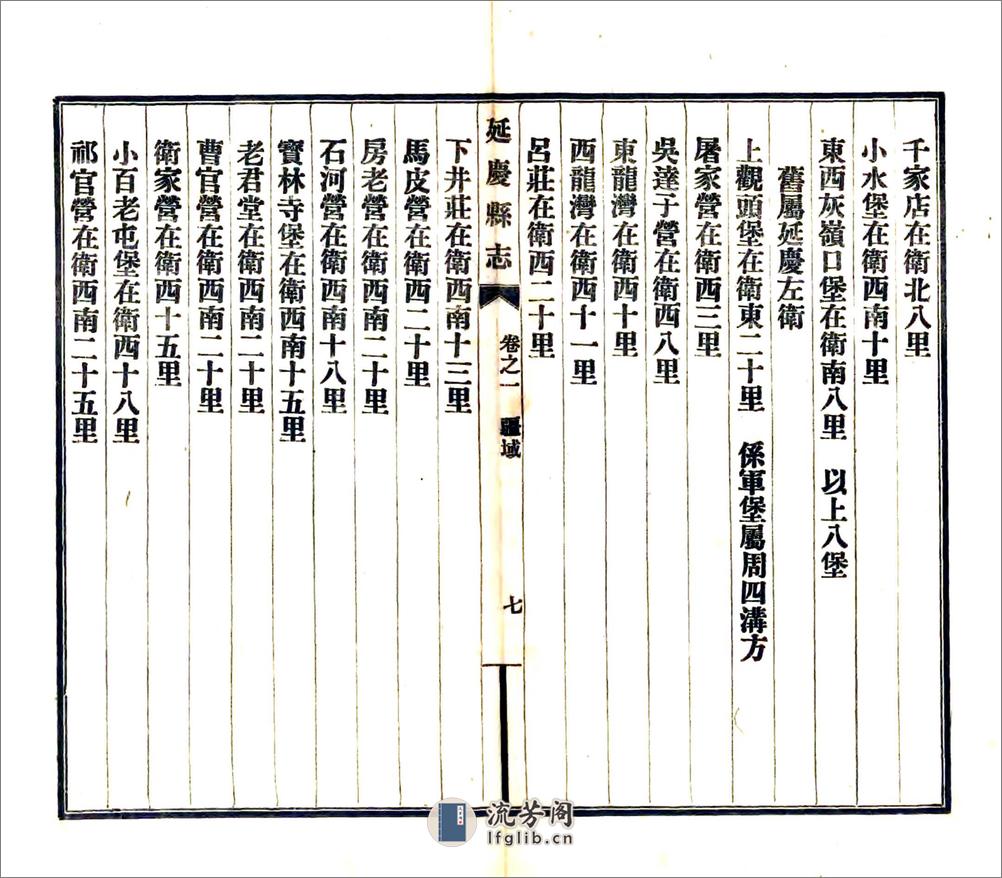 千家店在衛北八里
小水堡在衛西南十里
東西灰嶺口堡在衛南八里　以上八堡
舊屬延慶左衛
上觀頭堡在衛東二十里　係軍堡屬周四溝方
屠家營在衛西三里
吳達子營在衛西八里
東龍灣在衛西十里
西龍灣在衛西十一里
呂莊在衛西二十里
延慶縣志　卷之一　疆域　七
下井莊在衛西南十三里
馬皮營在衛西二十里
房老營在衛西南二十里
石河營在衛西南十八里
寶林寺堡在衛西南十五里
老君堂在衛西南二十里
曹官營在衛西南二十里
衛家營在衛西十五里
小百老屯堡在衛西四十八里
祁官營在衛西南二十五里
流芳阁
lfglib.cn